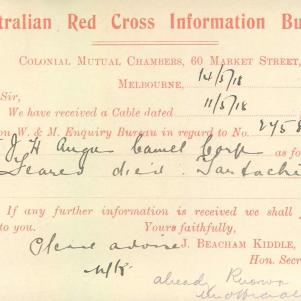 tralian Red Cross Information Bu
COLONIAL MUTUAL CHAMBERS, 60 MARKET STREET,
MELBOURNE, 14/5/18
Sir,
We have received a Cable dated 11/5/18
on W. & M. Enquiry Bureau in regard to No. 2758
J H Angu Camel Corp as fo
Feared died
If any further information is received we shall
to you. Yours faithfully,
Please advise J. BEACHAM KIDDLE,
Hon. Secr
already Known